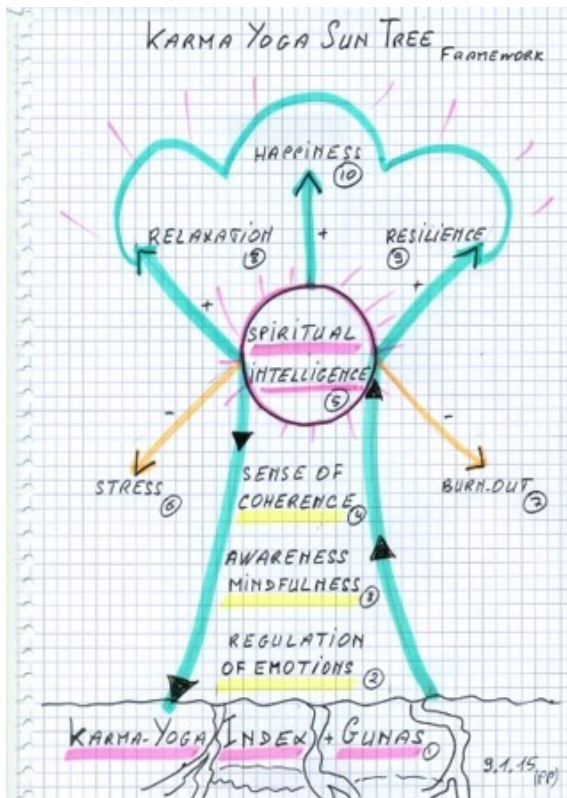 KARMA YOGA SUN TREE
FRAMEWORK
HAPPINESS
10
RELAXATION
8
RESILIENCE
9
+
+
+
SPIRITUAL
INTELLIGENCE
5
-
-
STRESS
6
BURN-OUT
7
SENSE OF
COHERENCE 4
AWARENESS
MINDFULNESS 3
REGULATION
OF EMOTIONS 2
KARMA-YOGA INDEX + GUNAS 1
9.1.15